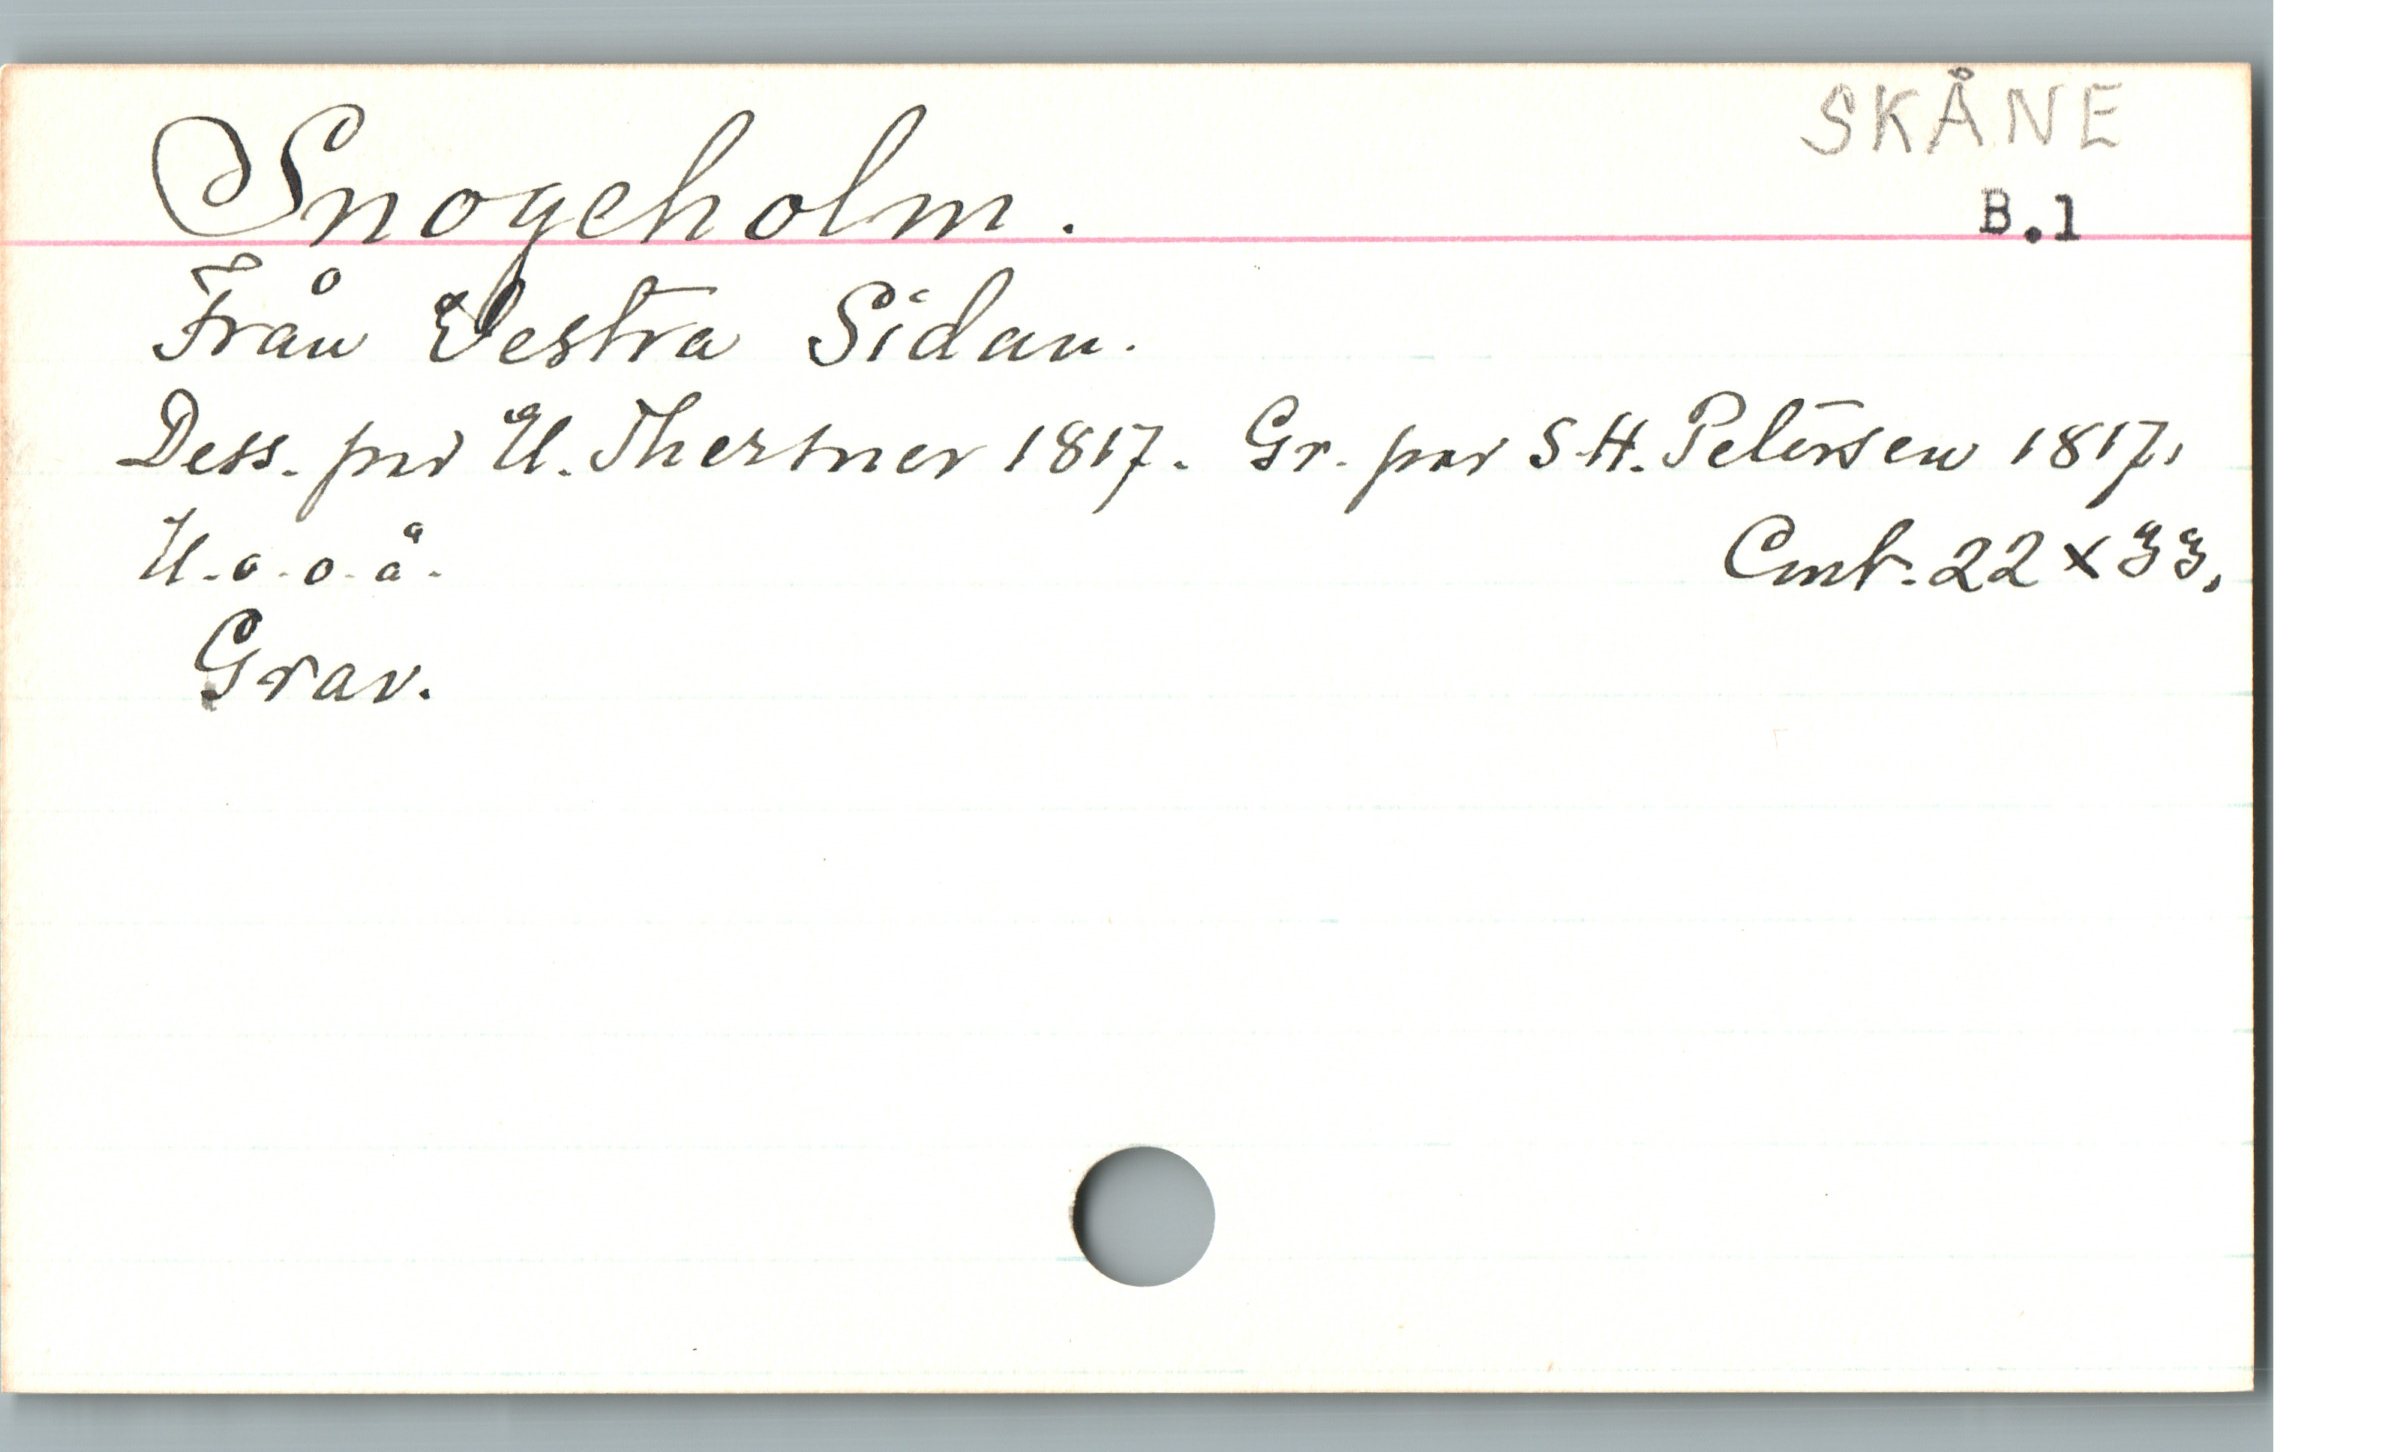 SKÅNE
Snogeholm.
B.1
Från Vestra Sidan.
Dess. par U. Thersner 1817. Gr. par S.H. Petersen 1817.
U.o.o.å. Cmt. 22 x 33.
Grav.